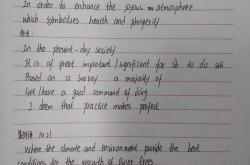 In order to enhance the joyous atmosphere
which symbolizes health and prosperity
In the present-day society
It is of great important / significant for sb to do sth
Based on a survey. a majority of
Get / have a good command of doing
I deem that practice makes perfect
Where the climate and environment provide the best
conditions for the growth of